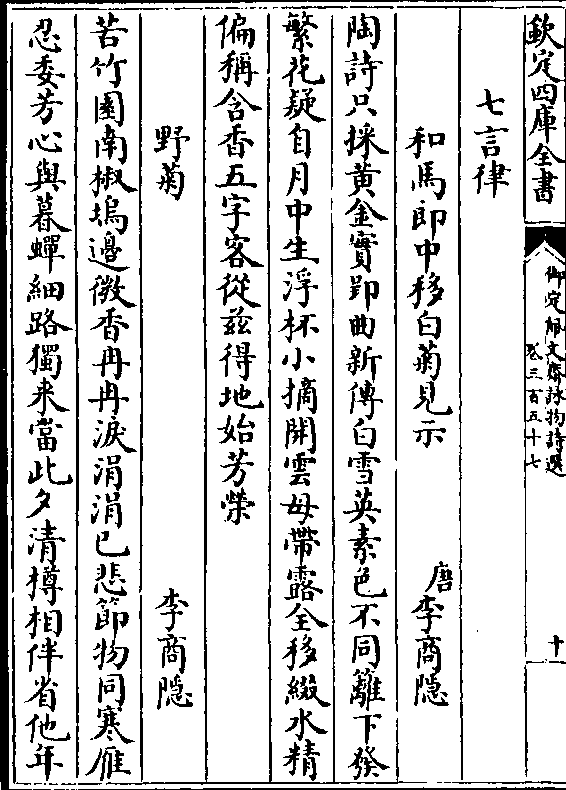 欽定四庫全書
御定佩文齋詠物詩選
卷三百五十七
十
七言律
和馬郎中移白菊見示
唐李商隱
陶詩只採黃金實郢曲新傳白雪英素色不同籬下發
繁花疑自月中生浮杯小摘開雲母帶露全移綴水精
偏稱含香五字客從茲得地始芳榮
野菊
李商隱
苦竹園南椒塢邊微香冉冉淚涓涓已悲節物同寒雁
忍委芳心與暮蟬細路獨来當此夕清樽相伴省他年